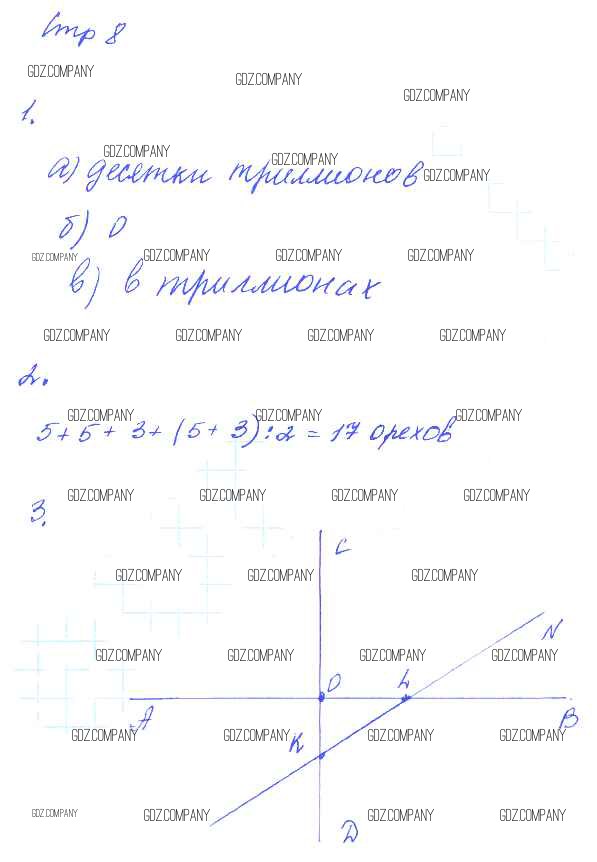 Стр 8
GDZ.COMPANY GDZ.COMPANY GDZ.COMPANY
1.
GDZ.COMPANY GDZ.COMPANY GDZ.COMPANY
а) десятки триллионов
б) 0
GDZ.COMPANY GDZ.COMPANY GDZ.COMPANY GDZ.COMPANY
в) в триллионах
GDZ.COMPANY GDZ.COMPANY GDZ.COMPANY GDZ.COMPANY
2.
GDZ.COMPANY GDZ.COMPANY GDZ.COMPANY
5+5+3+(5+3):2=17 орехов
GDZ.COMPANY GDZ.COMPANY GDZ.COMPANY GDZ.COMPANY
3.
C
GDZ.COMPANY GDZ.COMPANY GDZ.COMPANY
N
GDZ.COMPANY GDZ.COMPANY GDZ.COMPANY GDZ.COMPANY
O L
A B
GDZ.COMPANY GDZ.COMPANY GDZ.COMPANY GDZ.COMPANY
K
GDZ.COMPANY GDZ.COMPANY GDZ.COMPANY GDZ.COMPANY
D